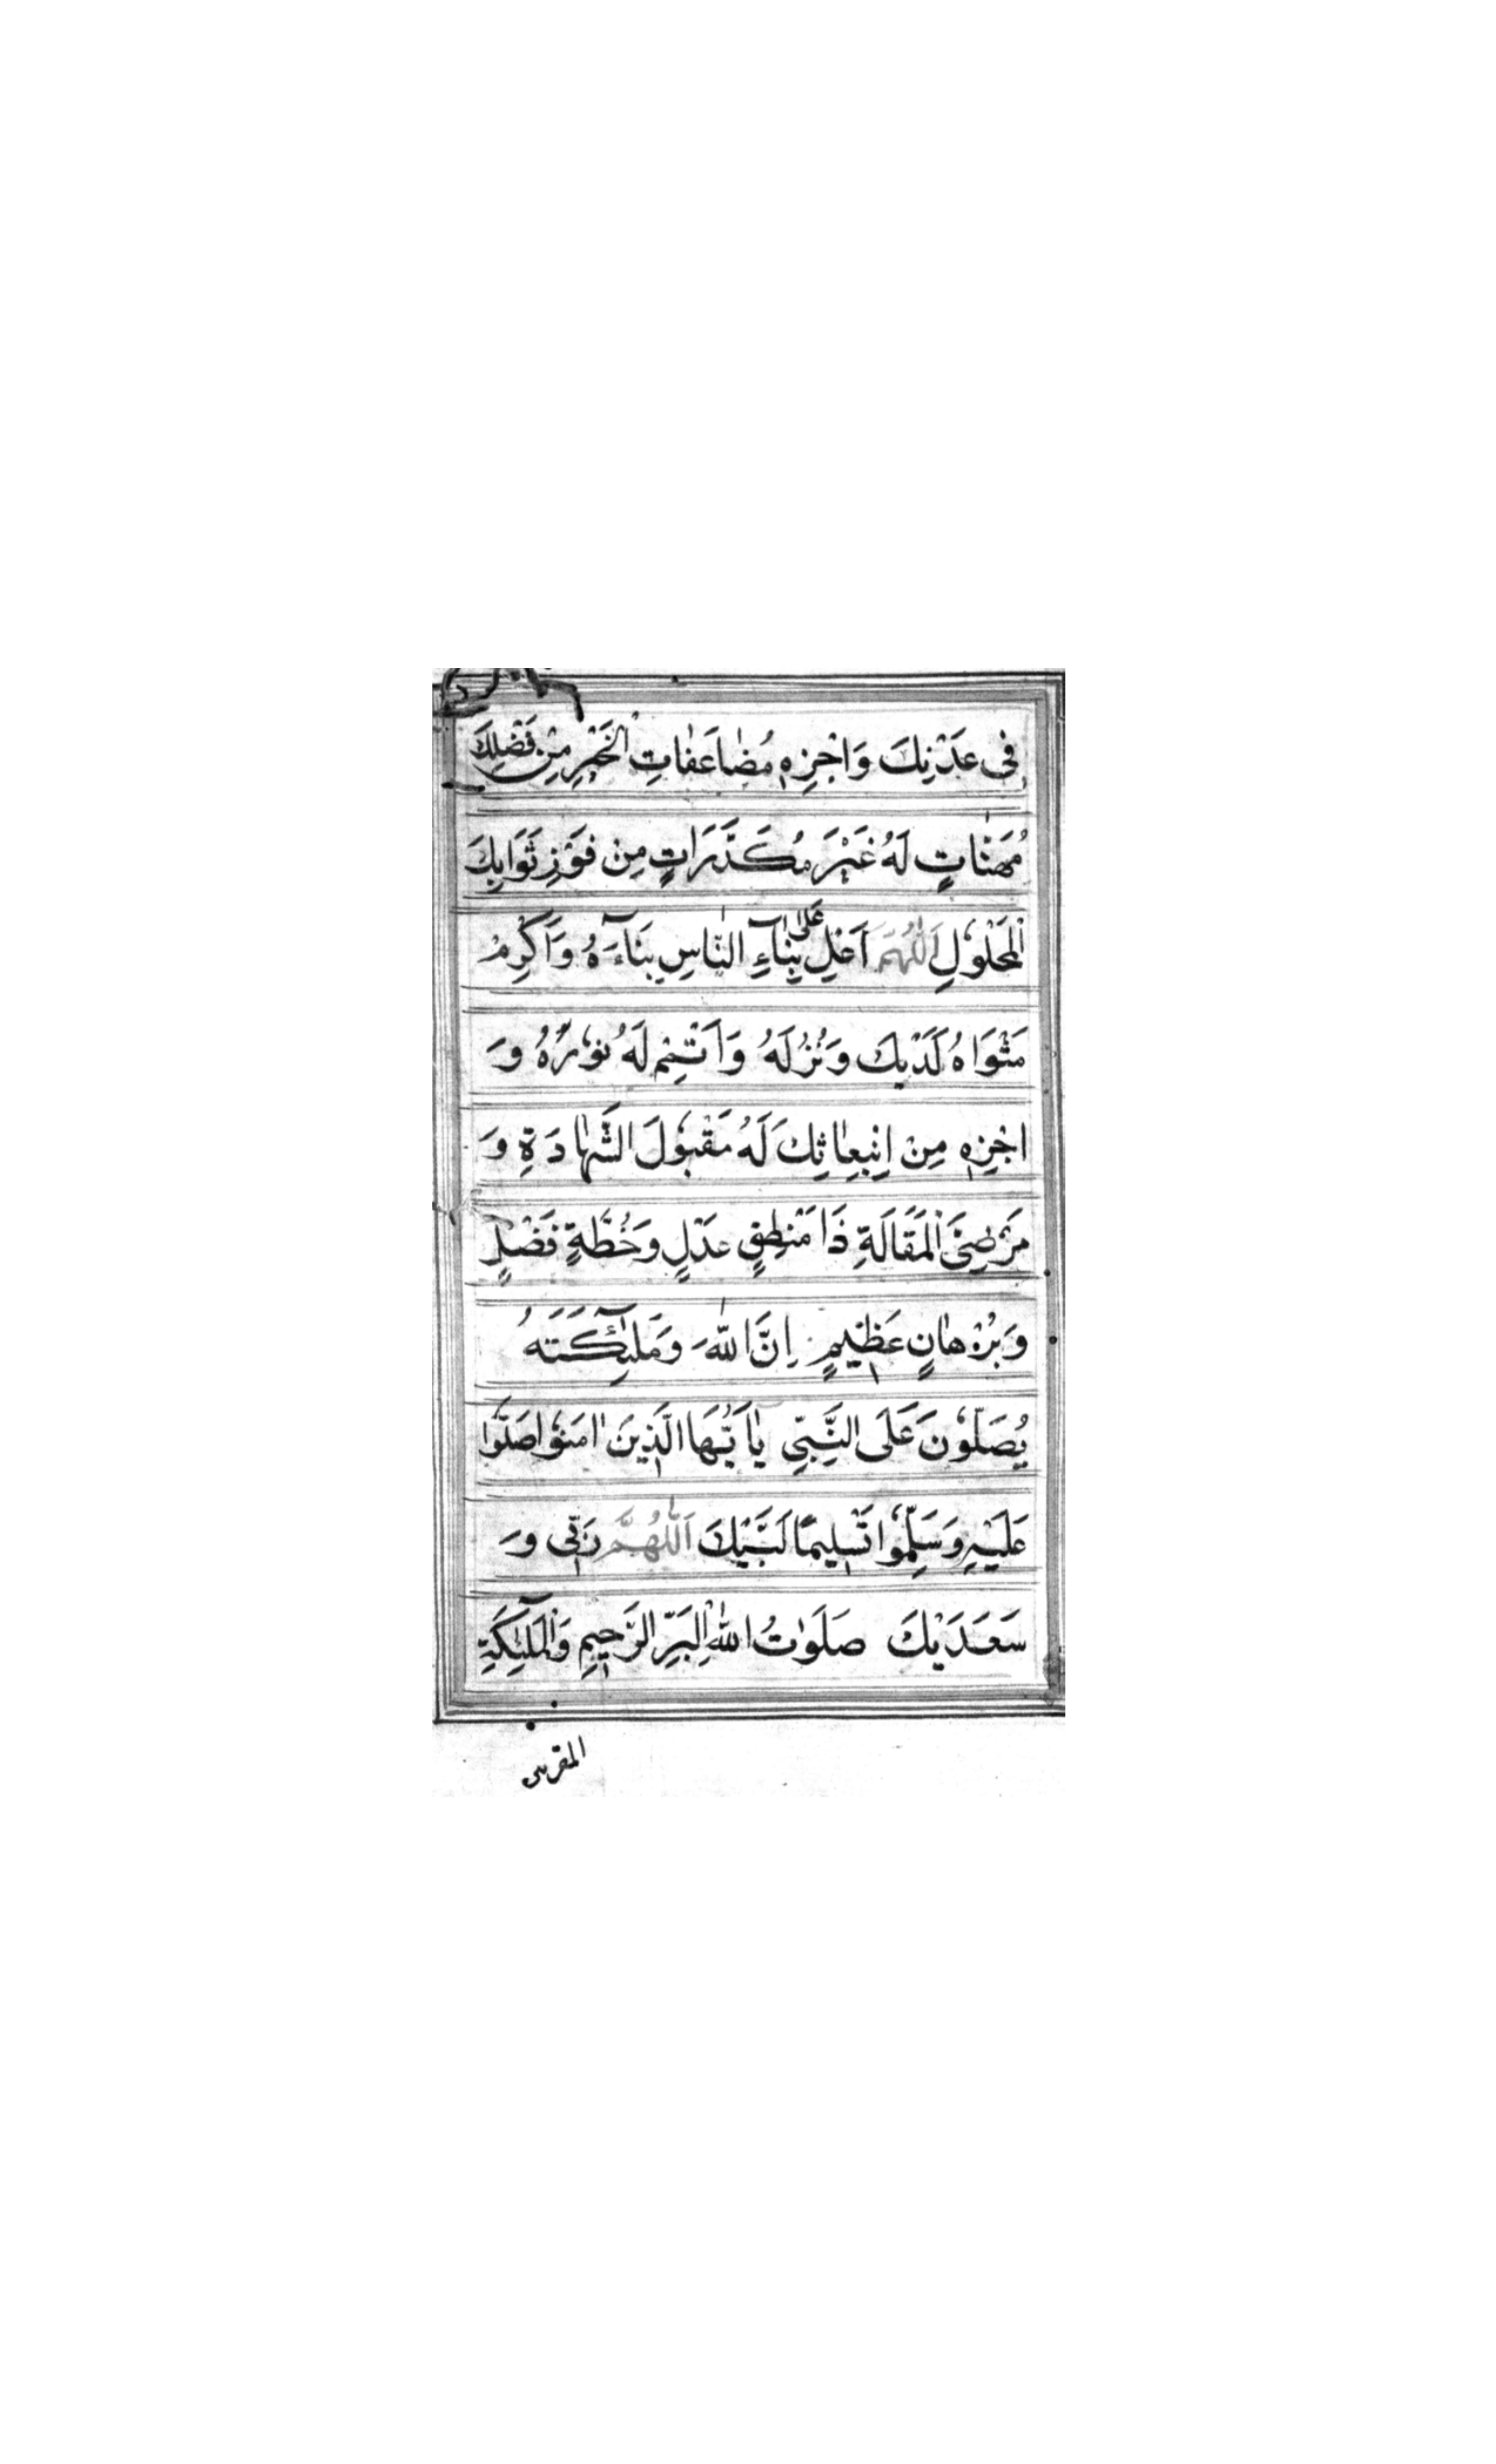 فِى عَدْنِكَ وَاجْزِهٖ مُضَاعَفَاتِ الْخَيْرِ مِنْ فَضْلِكَ
مُهَنَّاتٍ لَهُ غَيْرَ مُكَدَّرَاتٍ مِنْ فَوْزِ ثَوَابِكَ
الْمَحْلُوْلِ اَللّٰهُمَّ اَعْلِ عَلٰى بِنَآءِ النَّاسِ بِنَآءَهُ وَاَكْرِمْ
مَثْوَاهُ لَدَيْكَ وَنُزُلَهُ وَاَتْمِمْ لَهُ نُوْرَهُ وَ
اجْزِهٖ مِنْ اِنْبِعَاثِكَ لَهُ مَقْبُوْلَ الشَّهَادَةِ وَ
مَرْضِىَّ الْمَقَالَةِ ذَا مَنْطِقٍ عَدْلٍ وَخُطَّةٍ فَضْلٍ
وَبُرْهَانٍ عَظِيْمٍ اِنَّ اللّٰهَ وَمَلٰٓئِكَتَهُ
يُصَلُّوْنَ عَلَى النَّبِىِّ يٰاَيُّهَا الَّذِيْنَ اٰمَنُوْا صَلُّوْا
عَلَيْهِ وَسَلِّمُوْا تَسْلِيْمًا لَبَّيْكَ اَللّٰهُمَّ رَبِّى وَ
سَعَدَيْكَ صَلَوٰتُ اللّٰهِ الْبَرِّ الرَّحِيْمِ وَالْمَلٰٓئِكَةِ
المقربين